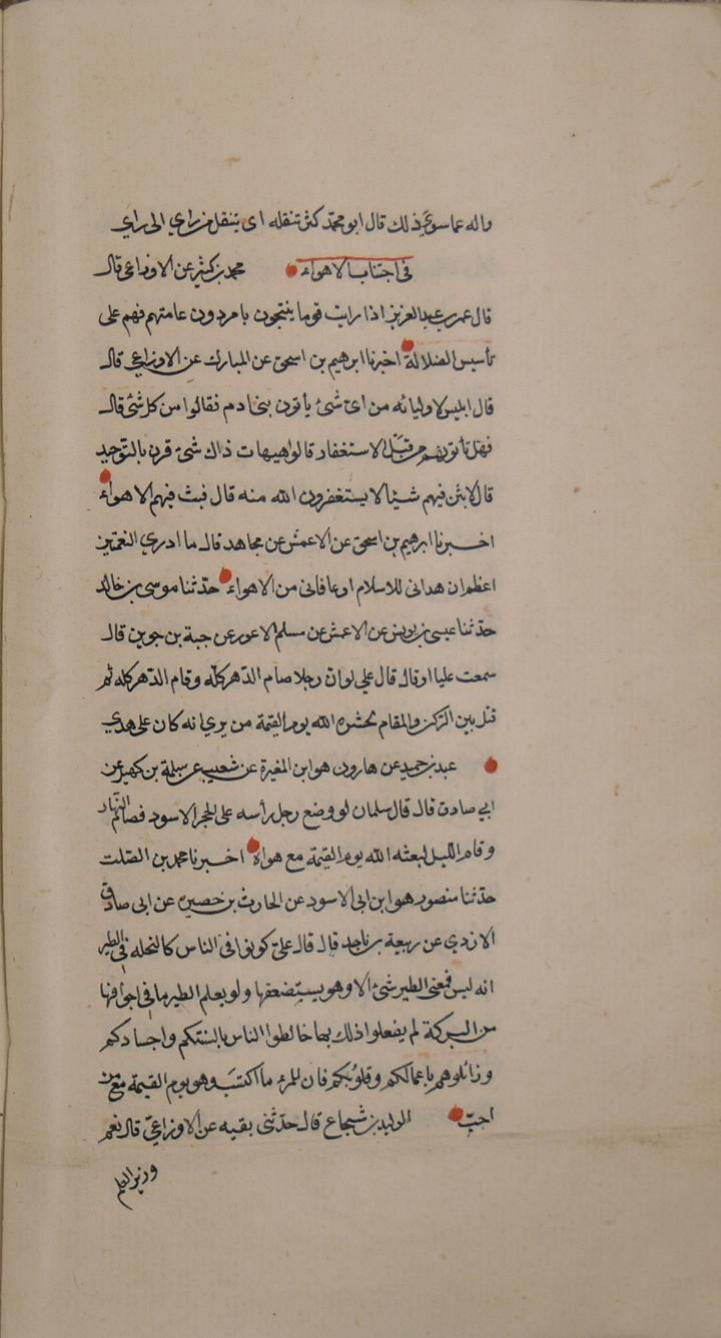 واله عما سوى ذلك قال ابو محمد كثر تنقله اى ينتقل من راي الى راي
فى اجتناب الاهواء محمد بن كثير عن الاوزاعى قال
قال عمر بن عبد العزيز اذا رايت قوما ينتجون بامر دون عامتهم فهم على
تأسيس الضلالة اخبرنا ابرهيم بن اسحق عن المبارك عن الاوزاعي قال
قال ابليس لاوليائه من اى شئ يأتون بنى ادم فقالوا من كل شئ قال
فهل تأتونهم من قبل الاستغفار قالوا هيهات ذاك شئ قرن بالتوحيد
قال لابثن فيهم شيئا لا يستغفرون الله منه قال فبث فيهم الاهواء
اخبرنا ابرهيم بن اسحق عن الاعمش عن مجاهد قال ما ادري اى النعمتين
اعظم ان هدانى للاسلام او عافانى من الاهواء حدثنا موسى بن خالد
حدثنا عيسى بن يونس عن الاعمش عن مسلم الاعور عن حبة بن جوين قال
سمعت عليا او قال قال علي لو ان رجلا صام الدهر كله وقام الدهر كله ثم
قتل بين الركن والمقام لحشره الله يوم القيمة من يري انه كان على هدي
عبد بن حميد عن هارون هو ابن المغيرة عن شعيب عن سلمة بن كهيل عن
ابي صادق قال قال سلمان لو وضع رجل رأسه على الحجر الاسود فصام النهار
وقام الليل لبعثه الله يوم القيمة مع هواه اخبرنا محمد بن الصلت
حدثنا منصور هو ابن ابى الاسود عن الحارث بن حصيرة عن ابى صادق
الازدي عن ربيعة بن ناجد قال قال على كونوا فى الناس كالنحله فى الطير
انه ليس فى الطير شئ الا وهو يستضعفها ولو يعلم الطير ما فى اجوافها
من البركة لم يفعلوا ذلك بها خالطوا الناس بالسنتكم واجسادكم
وزائلوهم باعمالكم وقلوبكم فان للمرء ما اكتسب وهو يوم القيمة مع من
احب الوليد بن شجاع قال حدثنى بقيه عن الاوزاعي قال نعم
وزير العلم